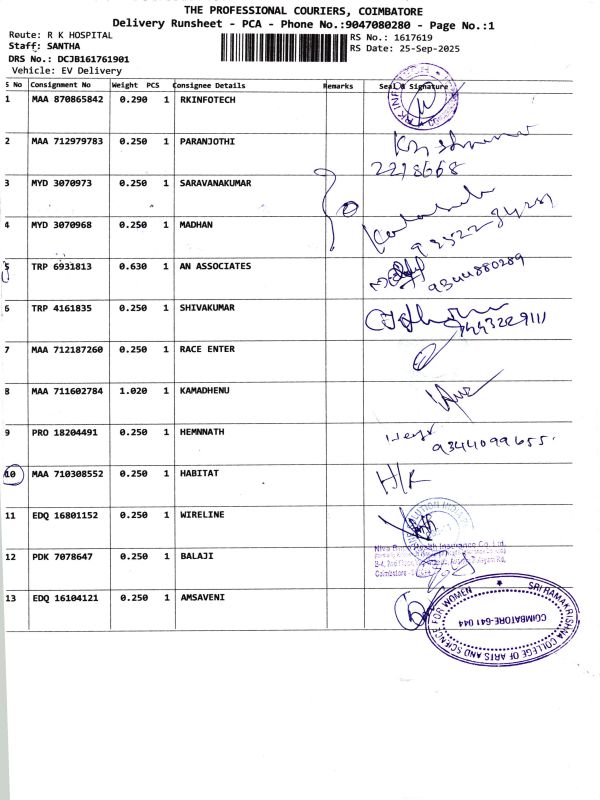 THE PROFESSIONAL COURIERS, COIMBATORE
Delivery Runsheet - PCA - Phone No.:9047080280 - Page No.:1
Route: R K HOSPITAL
RS No.: 1617619
Staff: SANTHA
RS Date: 25-Sep-2025
DRS No.: DCJB161761901
Vehicle: EV Delivery
S No Consignment No Weight PCS Consignee Details Remarks Seal & Signature
1 MAA 870865842 0.290 1 RKINFOTECH
2 MAA 712979783 0.250 1 PARANJOTHI
2218668
3 MYD 3070973 0.250 1 SARAVANAKUMAR
4 MYD 3070968 0.250 1 MADHAN
5 TRP 6931813 0.630 1 AN ASSOCIATES
9344880289
6 TRP 4161835 0.250 1 SHIVAKUMAR
7 MAA 712187260 0.250 1 RACE ENTER
8 MAA 711602784 1.020 1 KAMADHENU
9 PRO 18204491 0.250 1 HEMNNATH
9344099655.
10 MAA 710308552 0.250 1 HABITAT
H/K
11 EDQ 16801152 0.250 1 WIRELINE
Health Insurance Co. Ltd.
12 PDK 7078647 0.250 1 BALAJI
13 EDQ 16104121 0.250 1 AMSAVENI
SRI RAMAKRISHNA COLLEGE OF ARTS AND SCIENCE FOR WOMEN
COIMBATORE-641 044